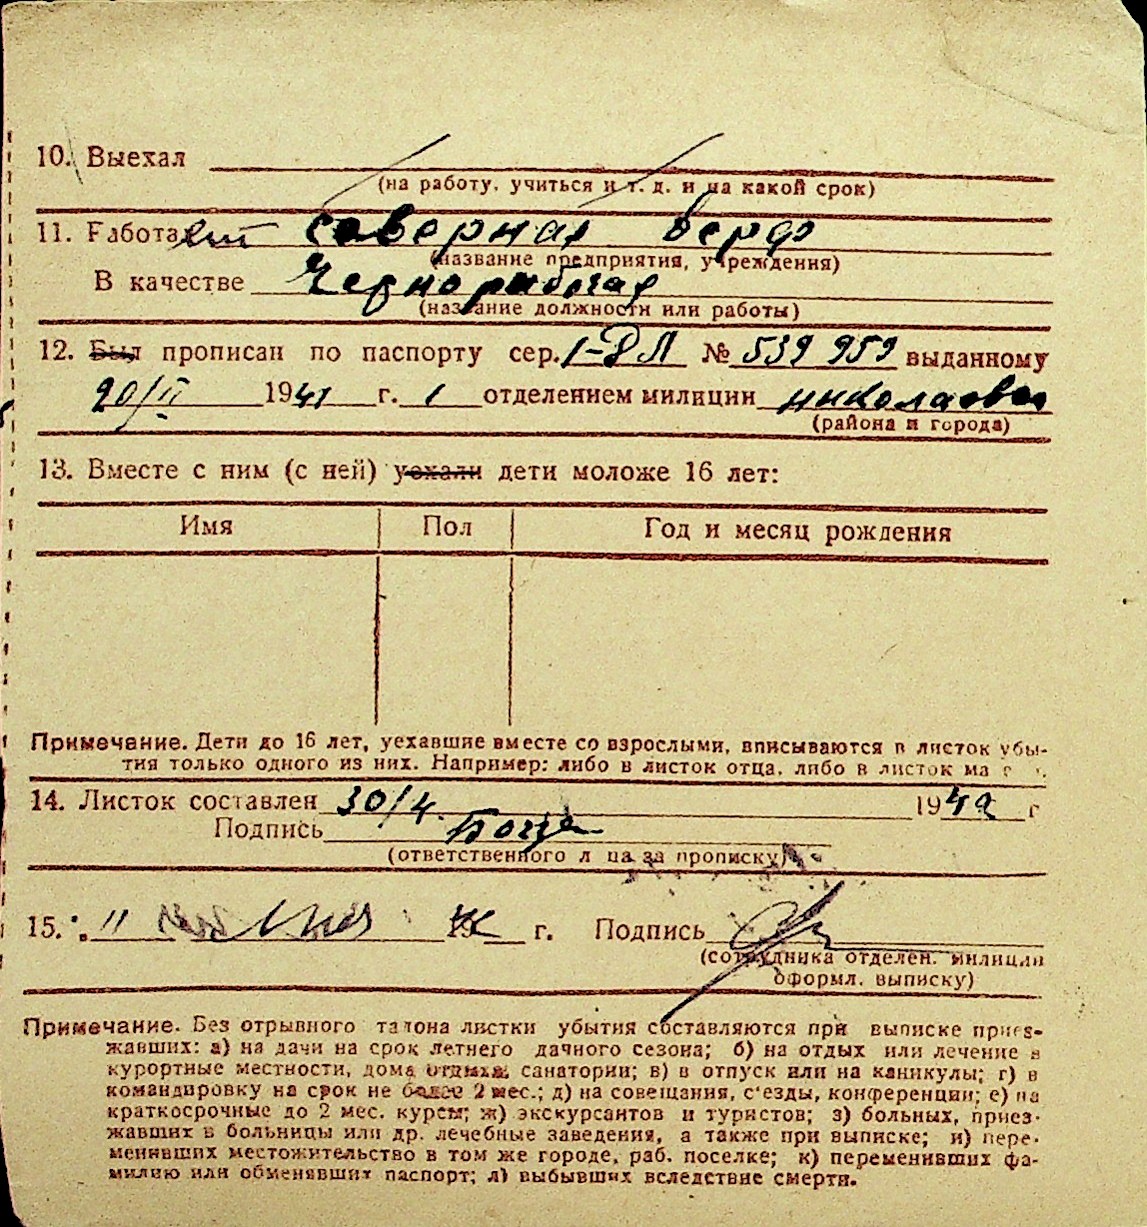 10. Выехал
(на работу, учиться и т. д. и на какой срок)
11. Работает Северная верф
(название предприятия, учреждения)
В качестве Чернорабочая
(название должности или работы)
12. Был прописан по паспорту сер. 1-РЛ № 539 959 выданному
20/II 1941 г. 1 отделением милиции николаевск
(района и города)
13. Вместе с ним (с ней) уехали дети моложе 16 лет:
Имя Пол Год и месяц рождения
Примечание. Дети до 16 лет, уехавшие вместе со взрослыми, вписываются в листок убы-
тия только одного из них. Например: либо в листок отца, либо в листок
14. Листок составлен 30/4. 1942 г
Подпись
(ответственного лица за прописку)
15. " 11 г. Подпись
(сотрудника отделен. милиции
оформл. выписку)
Примечание. Без отрывного талона листки убытия составляются при выписке приез-
жавших: а) на дачи на срок летнего дачного сезона; б) на отдых или лечение в
курортные местности, дома отдыха, санатории; в) в отпуск или на каникулы; г) в
командировку на срок не более 2 мес.; д) на совещания, с'езды, конференции; е) на
краткосрочные до 2 мес. курсы; ж) экскурсантов и туристов; з) больных, приез-
жавших в больницы или др. лечебные заведения, а также при выписке; и) пере-
менивших местожительство в том же городе, раб. поселке; к) переменивших фа-
милию или обменявших паспорт; л) выбывших вследствие смерти.